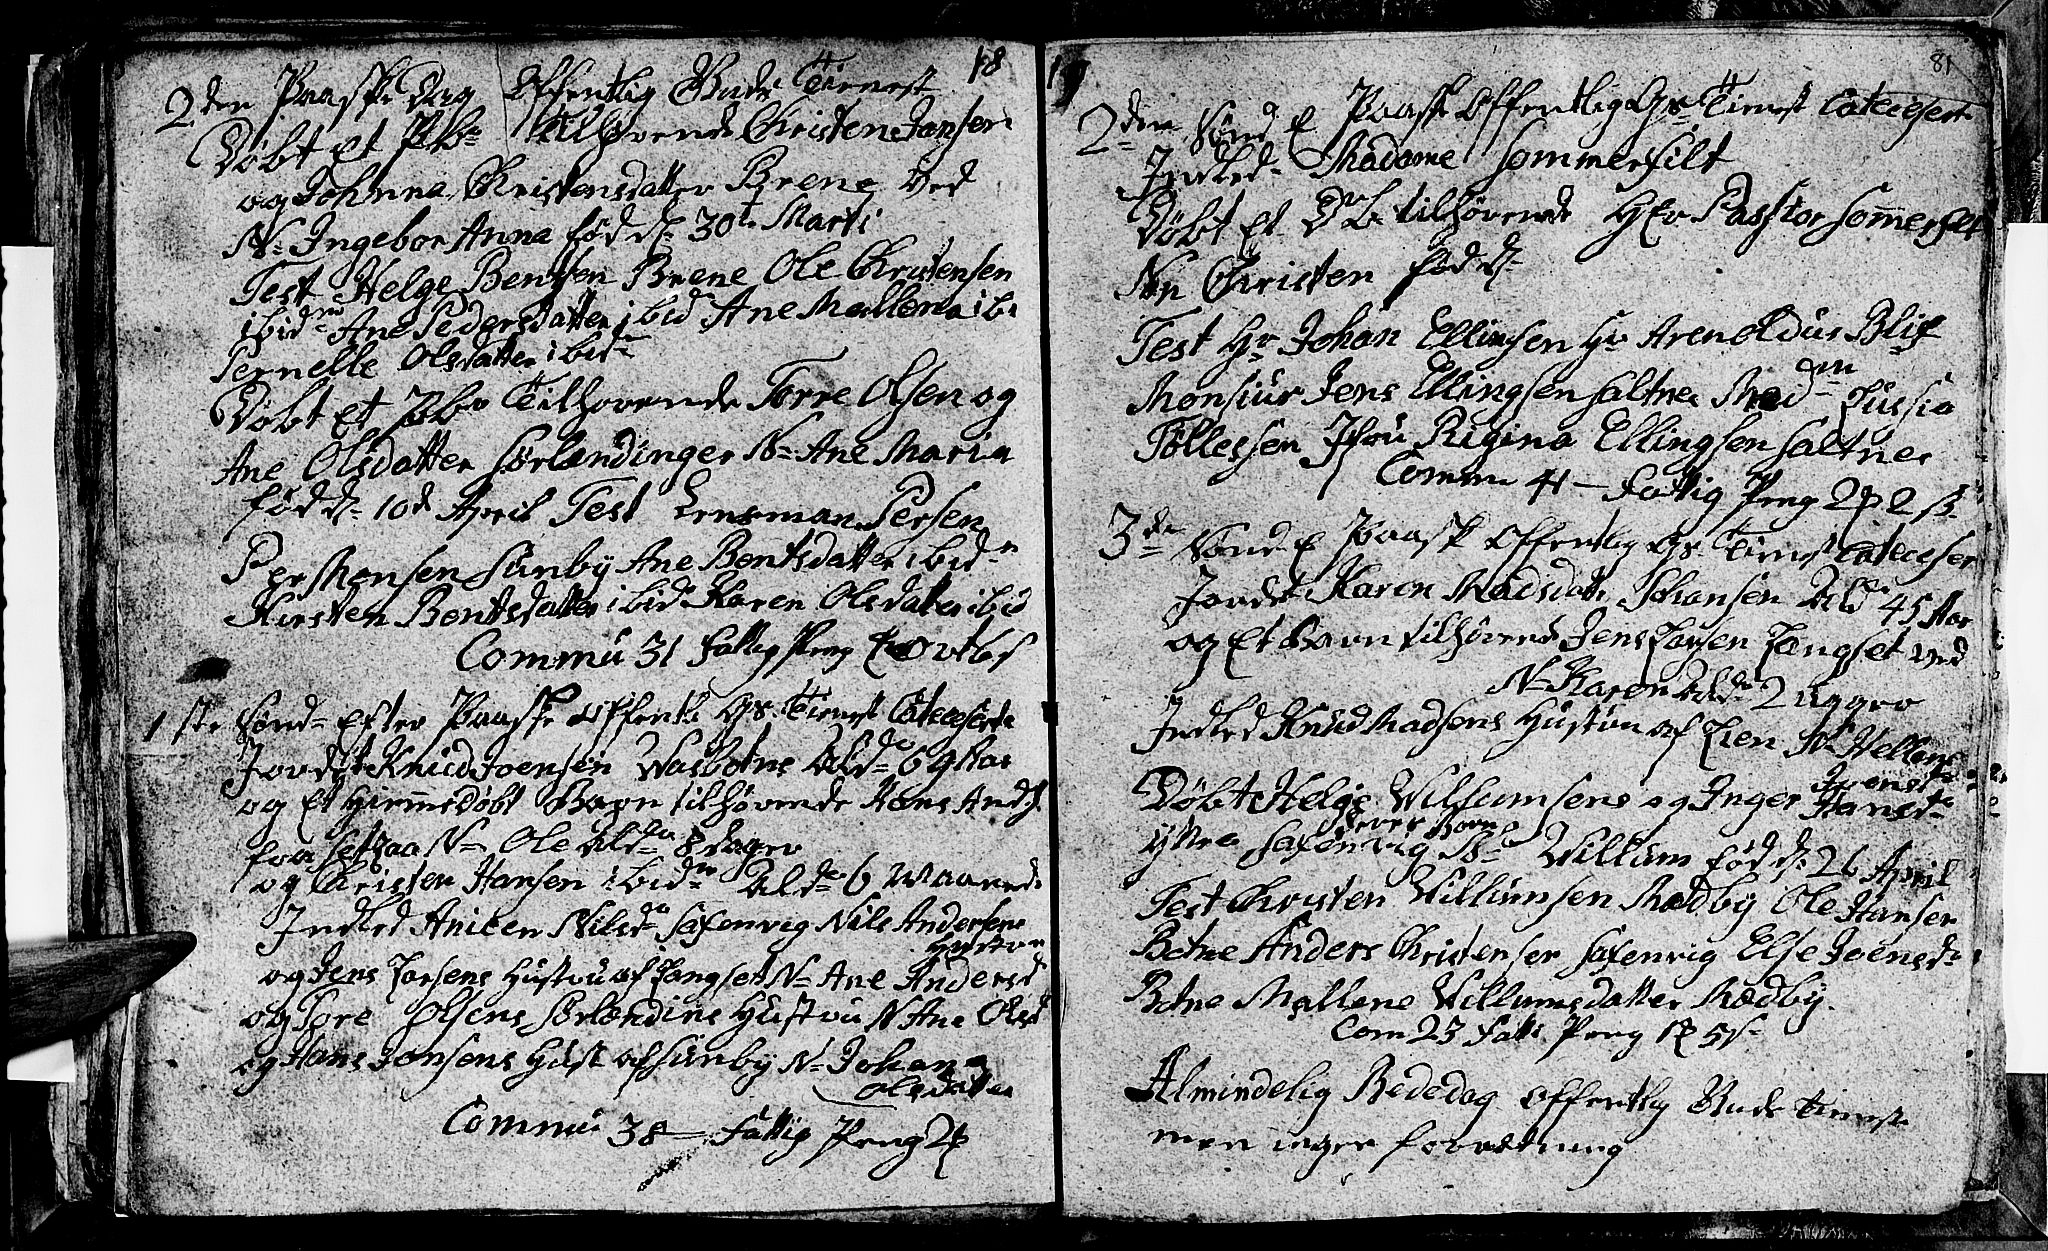 18
2den Paaske Dag Offentlig Guds Tienest
Døbt Et P.b. tilhørende Christen Jansen
og Johnna Christensdatter Brene Ved
N. Ingebor Anna fød d. 30te Marti
Test Helge Bentsen Brene Ole Christensen
ibidm Ane Pedersdatter ibid Ane Mallena ibi
Pernelle Olsdatter ibid
Døbt Et Pbr Tilhørende Torre Olsen og
Ane Olsdatter Sørlændinger N. Ane Maria
fød d. 10d April Test Ensman Persen
Per Monsen Sunby Ane Bentsdatter ibidm
Kirsten Bentsdatter ibid Karen Olsdatter ibid
Commu 31 Fattig Peng ort 6 s
1ste Sønd. Efter Paaske Offentl Gs. Tienest Catecisert
Jordet Knud Joensen Wasbotne Ald. 69 Aar
og Et Hiemmedøbt Barn tilhørende Hans And
N. Ole Ald. 8 dager
og Christen Hansen ibidm Ald. 6 Maaned
Indled Aniken Nilsd. Saxenvig Nils Andersens
Hustru
og Jens Larsens Hustru af Langset N. Ane Andersd
og Tore Olsens Sørlændins Hustru N Ane Olsd
og Hans Jonsens Hust af Sunby N. Johana
Olsdatter
Commu 38 — Fattig Peng 2
81
2den Sønd. E Paask Offentlig Gs. Tienest Catecisert
Indled. Madame Sommerfilt
Døbt Et D.b. tilhørende Hr Pastior Sommerfelt
N. Christen fød d.
Test Hr Johan Ellingsen Hr Arenoldus Blix
Monsiur Jens Ellingsen Saltnes Madm Lussia
Tøllessen Jfru Rigina Ellingsen Saltnes
Comm 41 — Fattig Peng 2 2 s.
3de Sønd. E Paask Offentlig Gs Tienest Cateceser
Jordet Karen Madsdatt Johansen Ald 45 Aar
og Et Barn tilhørend Jens Larsen Langset ved
N. Karen Ald. 2 Uger
Indled Knud Madsens Hustru af Lien N. Hellene
Joensd.
Døbt Helge Willumsens og Inger Hansd.
yttre Saxenvig N. Willum fød d. 26 April
Test Christen Willumsen Mædby Ole Hansen
Botne Anders Christensen Saxenvig Else Joensd
Botne Mallene Willumsdatter Mædby.
Com 23 Fatt. Peng 1 5 s.
Almindelig Bededag Offentlig Guds Tienest
men ingen forretning